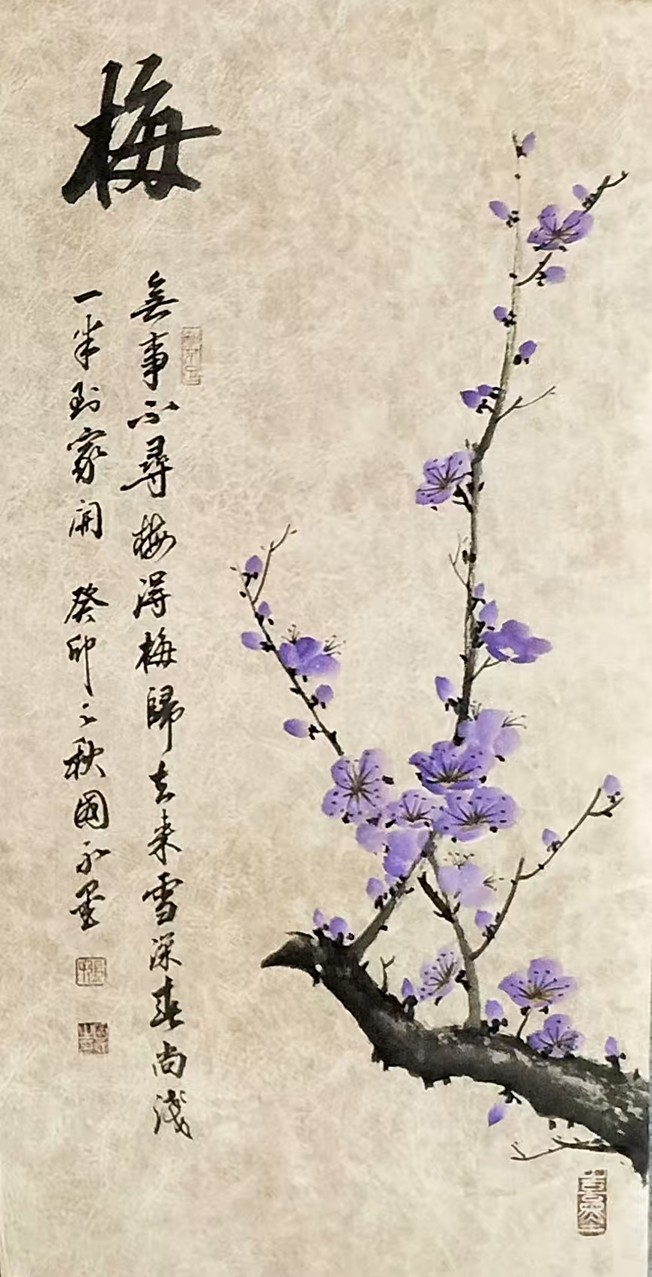 梅
無事不尋梅淂梅歸去来雪深春尚淺
一半到家開 癸卯之秋國永畫